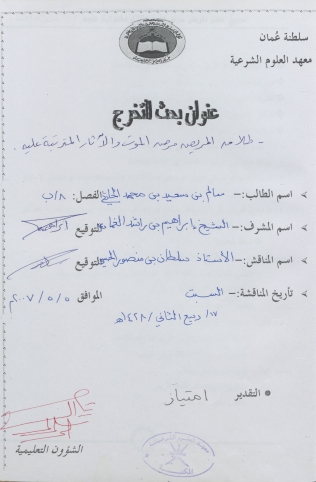 سلطنة عُمان
معهد العلوم الشرعية
عنوان بحث التخرج
- طلاق المريض مرض الموت والآثار المترتبة عليه.
اسم الطالب:- سالم بن سعيد بن محمد الفصل: ٨/ب
اسم المشرف:- الشيخ/ إبراهيم بن راشد التوقيع
اسم المناقش:- الأستاذ سلطان بن منصور التوقيع
تأريخ المناقشة:- السبت الموافق ٥ / ٥ / ٢٠٠٧
١٧/ ربيع الثاني /١٤٢٨هـ
التقدير امتياز
الشؤون التعليمية